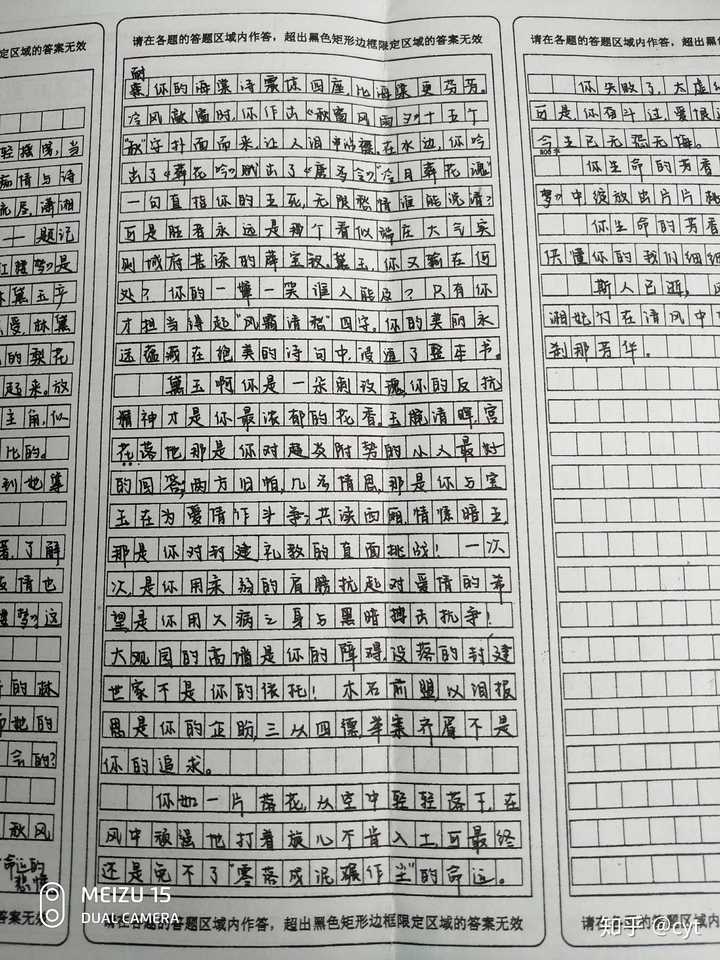 定区域的答案无效
轻摇曳，当
痴情与诗
流尽，潇湘
——题记
红楼梦》是
林黛玉产
爱，林黛
的梨花
起来。放
主角，似
比的。
了解
友情也
楼梦》这
的林
而她的
会的？
秋风
命运的
悲惨
答案无效
请在各题的答题区域内作答，超出黑色矩形边框限定区域的答案无效
耐
寒，你的海棠诗震惊四座比海棠更芬芳。
冷风敲窗时，你作出《秋窗风雨夕》十五个
"秋"字扑面而来，让人泪中在水边，你吟
出了《葬花吟》赋出了《唐多令》"冷月葬花魂"
一句直指你的生死，无限愁情谁能说清？
可是胜者永远是那个看似端庄大气实
则城府甚深的薛宝钗。黛玉，你又输在何
处？你的一颦一笑谁人能及？只有你
才担当得起"风露清愁"四字。你的美丽永
远蕴藏在绝美的诗句中，浸透了整本书。
黛玉啊你是一朵刺玫瑰，你的反抗
精神才是你最浓郁的花香。玉腕清晖，宫
花落地那是你对趋炎附势的小人最好
的回答；两方旧帕，几多情思，那是你与宝
玉在为爱情作斗争；共读西厢，情愫暗生，
那是你对封建礼教的直面挑战！一次
次，是你用柔弱的肩膀抗起对爱情的希
望是你用久病之身与黑暗搏击抗争！
大观园的高墙是你的障碍，没落的封建
世家不是你的依托！木石前盟，以泪报
恩是你的企盼，三从四德，举案齐眉不是
你的追求。
你如一片落花，从空中轻轻落下，在
风中顽强地打着旋儿不肯入土，可最终
还是免不了"零落成泥碾作尘"的命运。
请在各题的答题区域内作答，超出黑色矩形边框限定区域的答案无效
请在各题的答题区域内作答，超出黑
你失败了，大虚
可是，你奋斗过，爱恨过
今生已无怨无悔。
800字
你生命的芳香
梦》中绽放出片片桃
你生命的芳香
供懂你的我们细细
斯人已逝，风
湘妃竹在清风中
刹那芳华。
请在各题的答题区域内作
MEIZU 15
DUAL CAMERA
知乎 @cyt